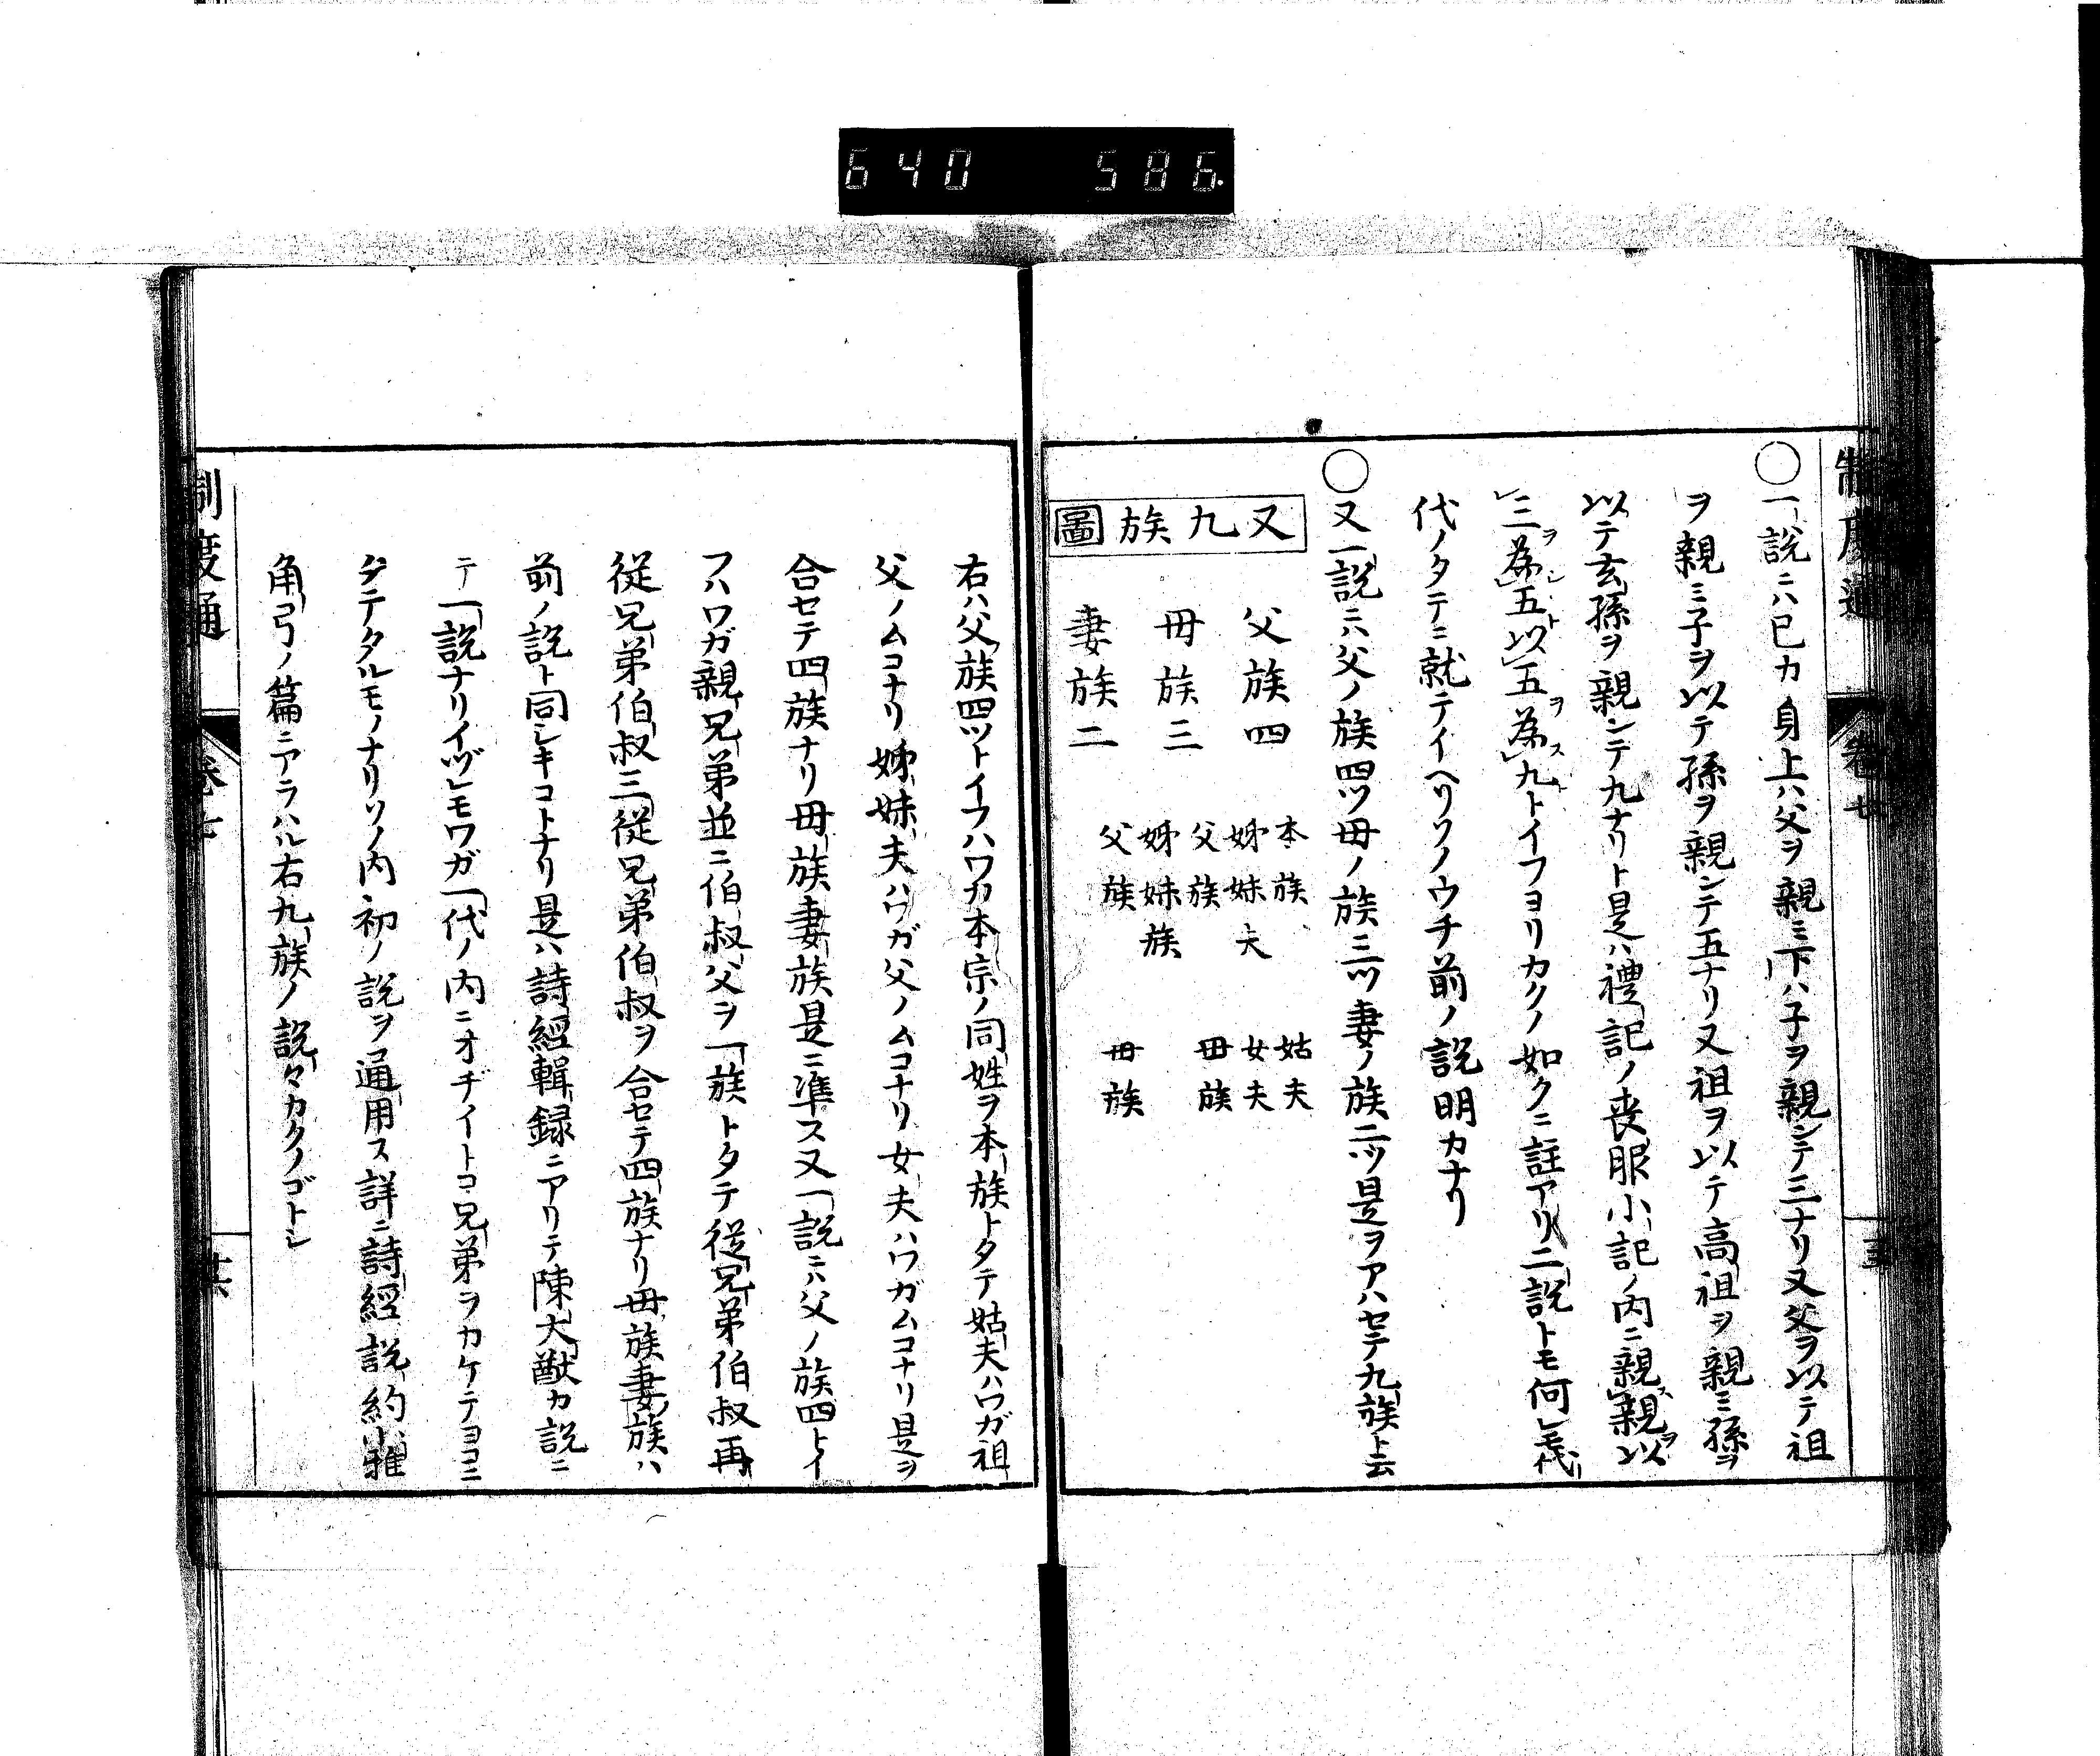 640 586.
制度通 卷七 十五
○一說ニハ己カ身上ハ父ヲ親ミ下ハ子ヲ親ンテ三ナリ又父ヲ以テ祖
ヲ親ミ子ヲ以テ孫ヲ親ンテ五ナリ又祖ヲ以テ高祖ヲ親ミ孫ヲ
以テ玄孫ヲ親ンテ九ナリト是ハ禮記ノ喪服小記ノ內ニ親レ親ヲ以
レ三ヲ為レ五ト以レ五ヲ為レ九トイフヨリカクノ如クニ註アリ二說トモ何レモ代
代ノタテニ就テイヘリソノウチ前ノ說明カナリ
○又一說ニハ父ノ族四ツ母ノ族三ツ妻ノ族二ツ是ヲアハセテ九族ト云
又九族圖
父族四 本族 姑夫
姊妹夫 女夫
母族三 父族 母族
姊妹族
妻族二 父族 母族
右ハ父族四ツトイフハワカ本宗ノ同姓ヲ本族トタテ姑夫ハワガ祖
父ノムコナリ姊妹夫ハワガ父ノムコナリ女夫ハワガムコナリ是ヲ
合セテ四族ナリ母族妻族是ニ準ス又一說ニハ父ノ族四トイ
フハワガ親兄弟並ニ伯叔父ヲ一族トタテ從兄弟伯叔再
從兄弟伯叔三從兄弟伯叔ヲ合セテ四族ナリ母族妻族ハ
前ノ說ト同シキコトナリ是ハ詩經輯録ニアリテ陳大猷カ說ニ
テ一說ナリイヅレモワガ一代ノ內ニオヂイトコ兄弟ヲカケテヨコニ
タテタルモノナリソノ內初ノ說ヲ通用ス詳ニ詩經說約小雅
角弓ノ篇ニアラハル右九族ノ說々カクノゴトシ
制度通 卷七 十六